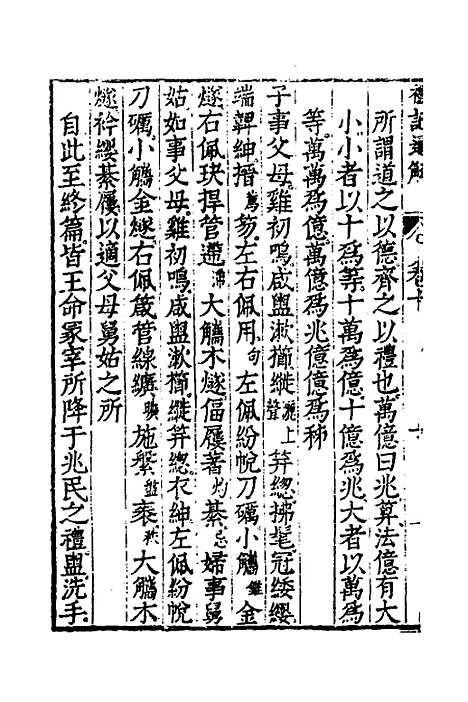 禮記通解 卷十
所謂道之以德齊之以禮也萬億曰兆算法億有大
小小者以十爲等十萬爲億十億爲兆大者以萬爲
等萬萬爲億萬億爲兆億億爲秭
子事父母雞初鳴咸盥漱櫛縰䍦上聲笄總拂髦冠緌纓
端韠紳搢篤笏左右佩用句左佩紛帨刀礪小觿金
燧右佩玦捍管遰滯大觿木燧偪屨著灼綦忌婦事舅
姑如事父母雞初鳴咸盥漱櫛縰笄總衣紳左佩紛帨
刀礪小觿金燧右佩箴管線纊曠施縏盤袠秩大觿木
燧衿纓綦屨以適父母舅姑之所
自此至終篇皆王命冢宰所降于兆民之禮盥洗手